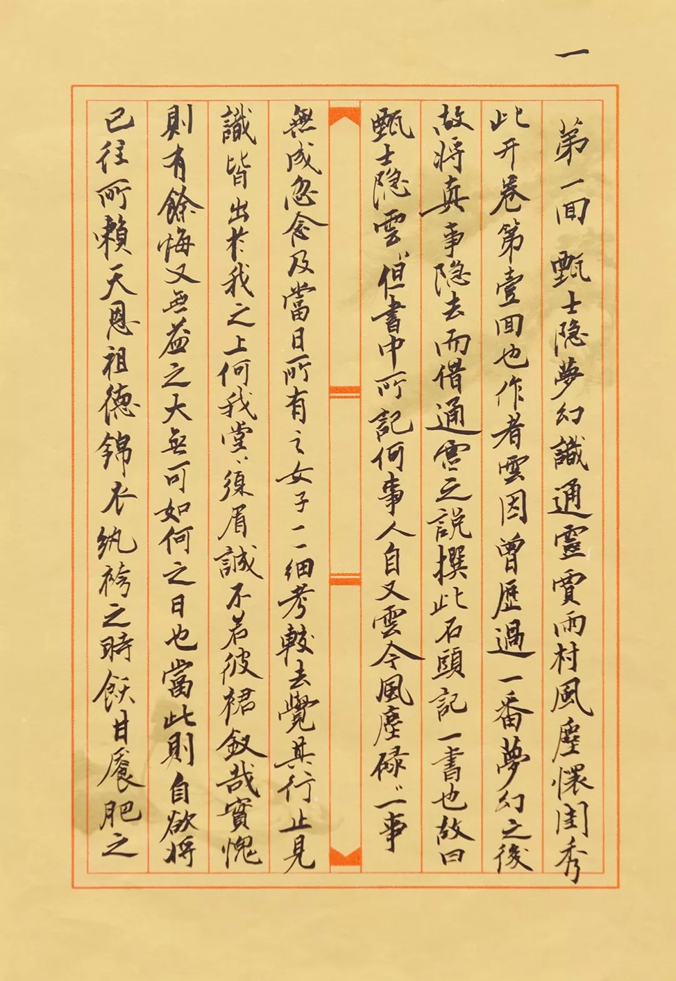 一
第一回 甄士隐夢幻識通靈賈雨村風塵懷閨秀
此开卷第壹回也作者雲因曾歷過一番夢幻之後
故将真事隐去而借通靈之說撰此石頭記一書也故曰
甄士隐雲〻但書中所記何事人自又雲今風塵碌〻一事
無成忽念及當日所有之女子一一細考較去覺其行止見
識皆出於我之上何我堂〻須眉誠不若彼裙釵哉實愧
則有餘悔又無益之大無可如何之日也當此則自欲将
已往所賴天恩祖德錦衣紈袴之時飫甘饜肥之